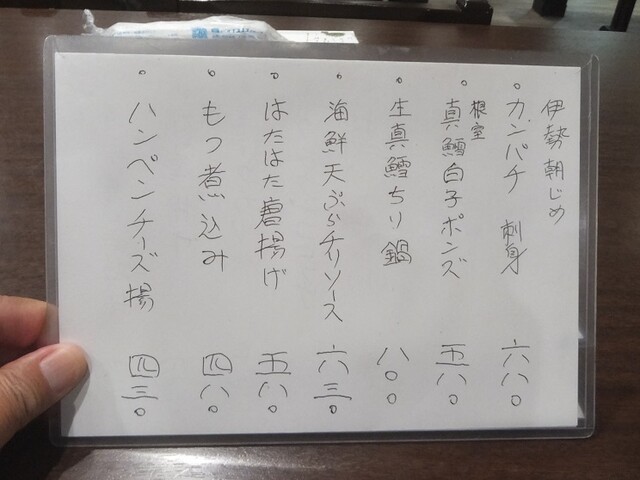 伊勢朝じめ
・カンパチ 刺身 六八〇
根室
・真鱈白子ポンズ 五八〇
・生真鱈ちり鍋 八〇〇
・海鮮天ぷらチリソース 六三〇
・はたはた唐揚げ 五八〇
・もつ煮込み 四八〇
・ハンペンチーズ揚 四三〇